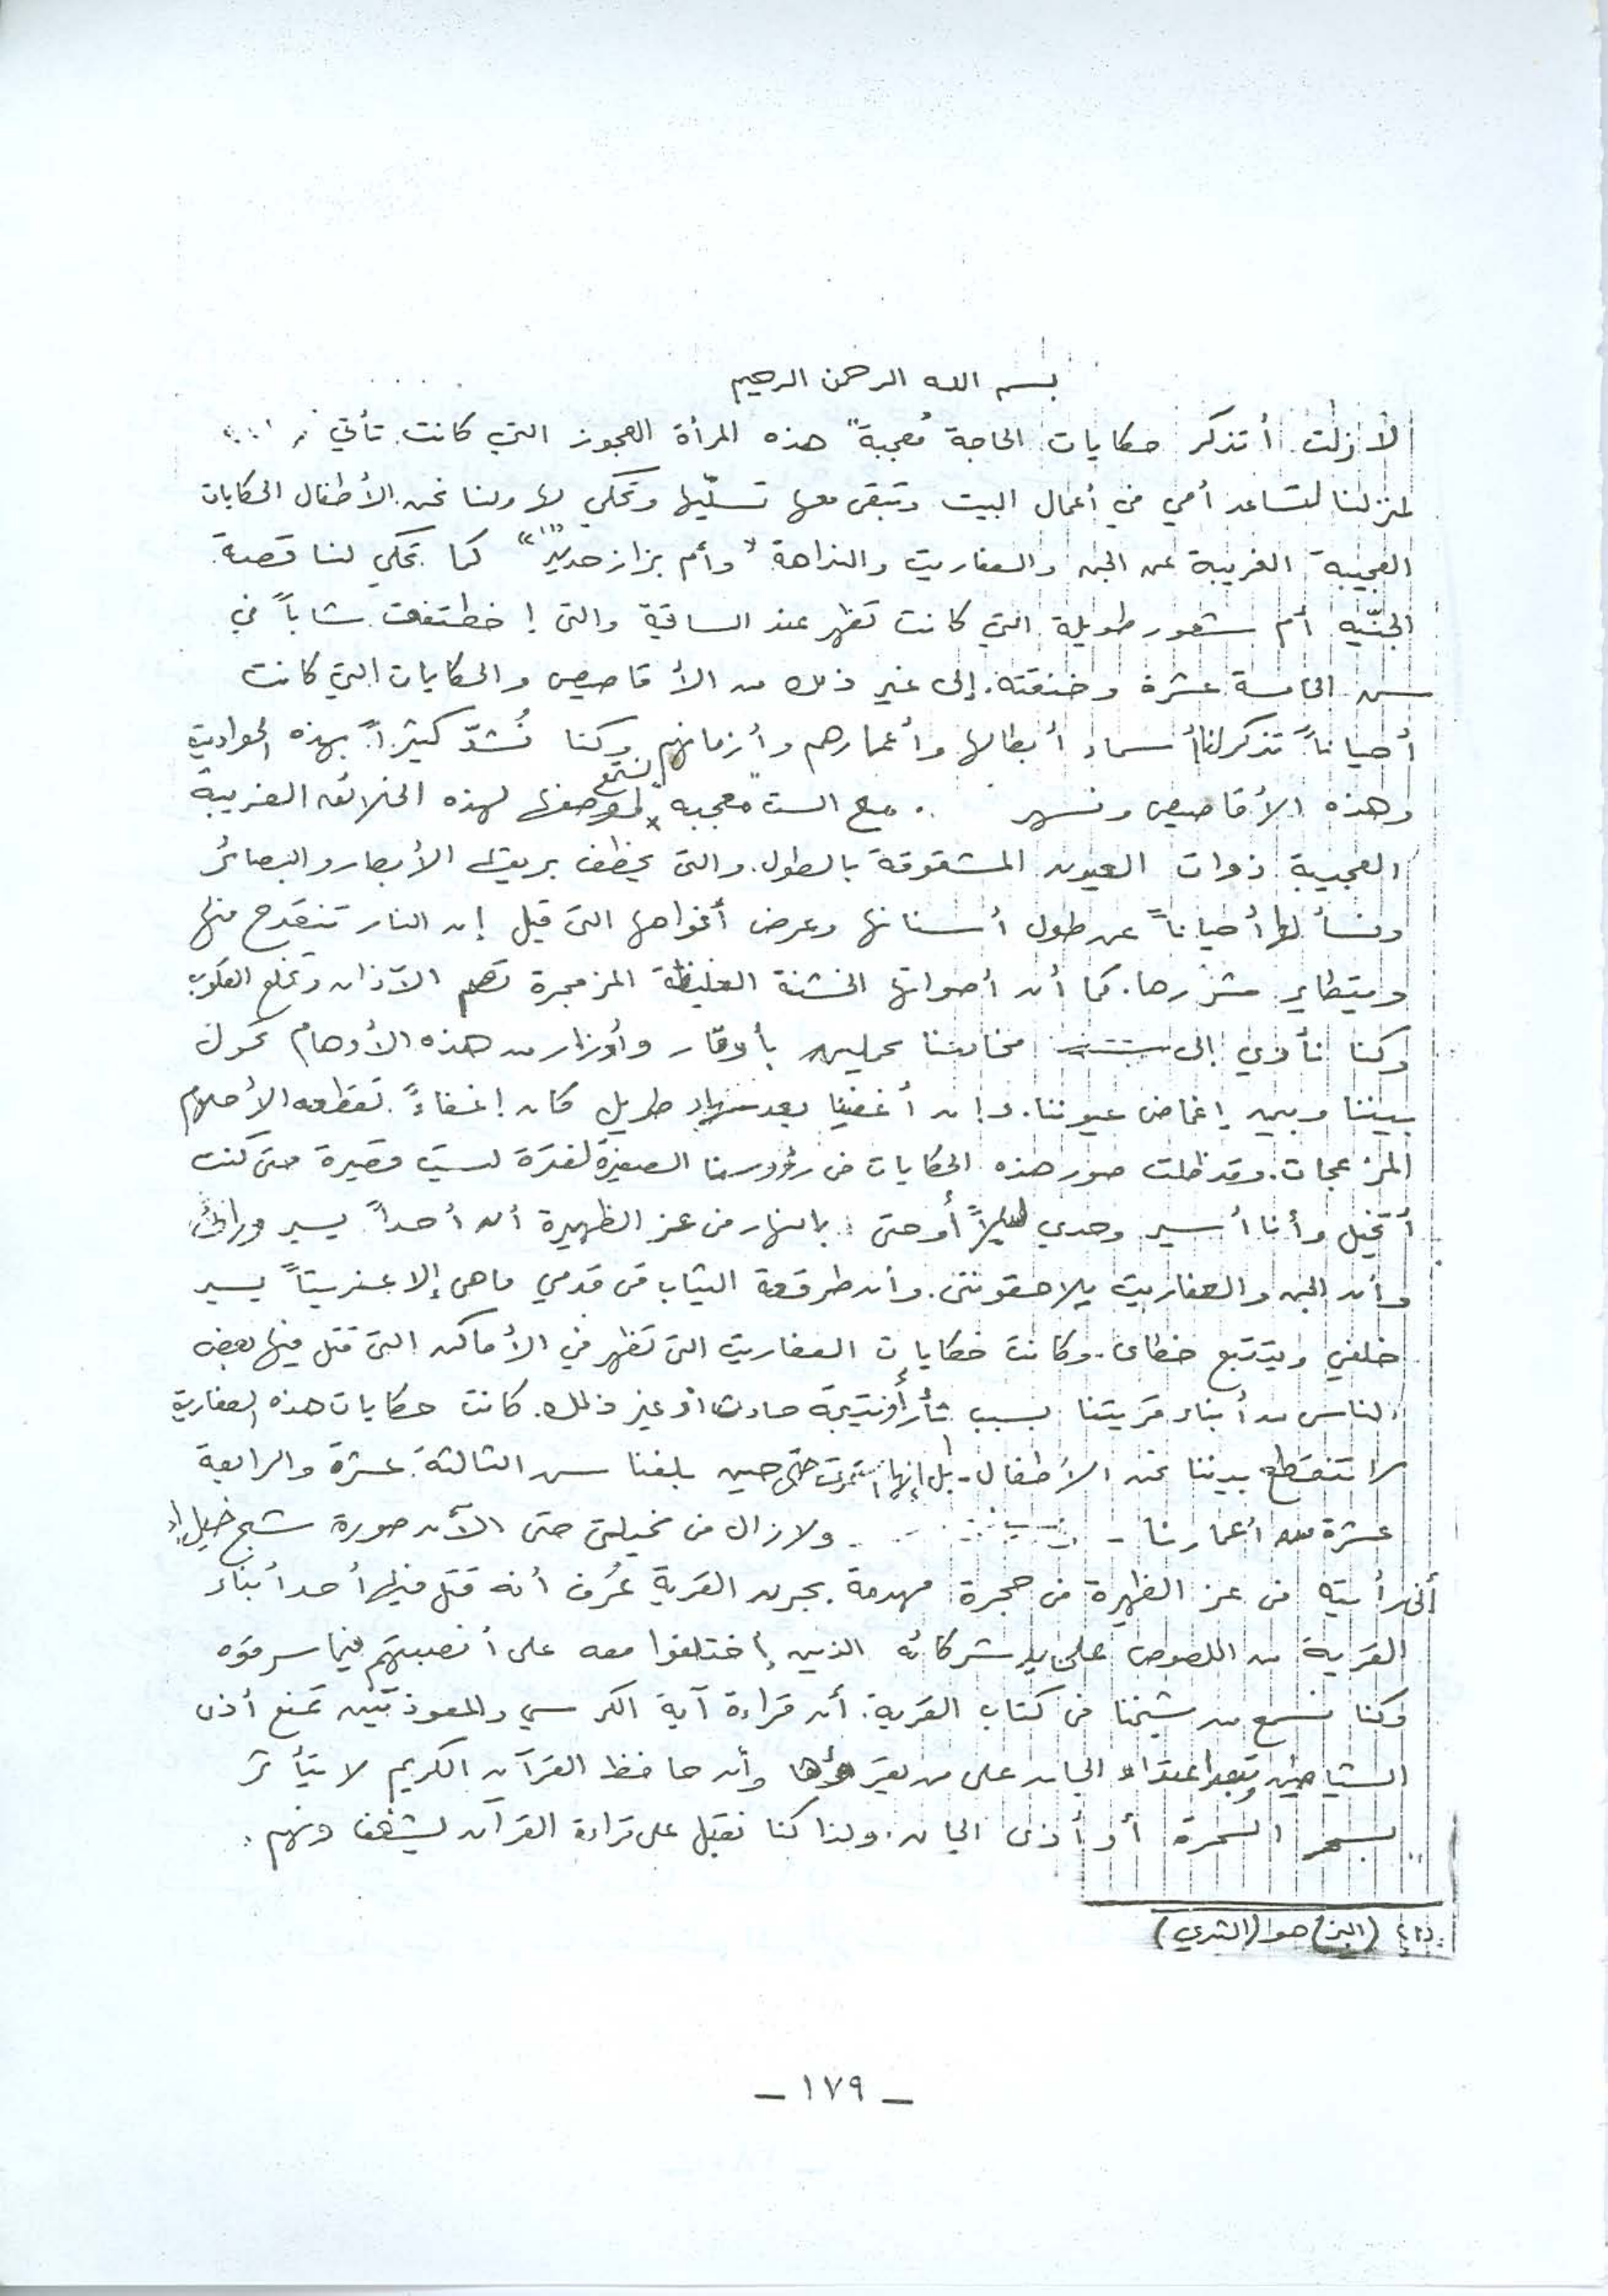 بسم الله الرحمن الرحيم
لازلت أتذكر حكايات الحاجة "مُعجبة" هذه المرأة العجوز التي كانت تأتي
لمنزلنا لتساعد أمي في أعمال البيت وتبقى معها تسلّيها وتحكي لها ولنا نحن الأطفال الحكايات
العجيبة الغريبة عن الجن والعفاريت والنداهة "وأم بزاز حديد" (١) كما تحكي لنا قصة
الجنّيه أم شعور طويلة التي كانت تظهر عند الساقية والتى إختطفت شاباً في
سن الخامسة عشرة وخنقته. إلى غير ذلك من الأقاصيص والحكايات التي كانت
أحياناً تذكر لنا أسماء أبطالها وأعمارهم وأزمانهم وكنا نُشدّ كثيراً بهذه الحواديت
وهذه الأقاصيص ونسهر مع الست "معجبه" نستمع لوصفها لهذه الخلائق الغريبة
العجيبة ذوات العيون المشقوقة بالطول. والتى يخطف بريقها الأبصار والبصائر
ونسألها أحياناً عن طول أسنانها وعرض أفواهها التى قيل إن النار تنقدح منها
ويتطاير شررها. كما أن أصواتها الخشنة الغليظة المزمجرة تصم الآذان وتخلع القلوب
وكنا نأوي إلى مخادعنا محملين بأوقار وأوزار من هذه الأوهام تحول
بيننا وبين إغماض عيوننا. وإن أغفينا بعد سهاد طويل كان إغفاءً تقطعه الأحلام
المزعجات. وقد ظلت صور هذه الحكايات فى رؤوسنا الصغيرة لفترة ليست قصيرة حتى كنت
أتخيل وأنا أسير وحدي ليلاً أو حتى بالنهار فى عز الظهيرة أن أحداً يسير ورائى
وأن الجن والعفاريت يلاحقوننى. وأن طرقعة الثياب فى قدمي ماهى إلا عفريتاً يسير
خلفي ويتتبع خطاى. وكانت حكايات العفاريت التى تظهر في الأماكن التى قتل فيها بعض
الناس من أبناء قريتنا بسبب ثأر أو نتيجة حادث أو غير ذلك. كانت حكايات هذه العفاريت
لا تنقطع بيننا نحن الأطفال - بل إنها استمرت حتى حين بلغنا سن الثالثة عشرة والرابعة
عشرة من أعمارنا - ولازال فى مخيلتى حتى الآن صورة شبح خيل إلى
أنى رأيته فى عز الظهيرة فى حجرة مهدمة بجرن القرية عُرف أنه قتل فيها أحد أبناء
القرية من اللصوص على يد شركائه الذين إختلفوا معه على أنصبتهم فيما سرقوه
وكنا نسمع من شيخنا فى كتاب القرية. أن قراءة آية الكرسي والمعوذتين تمنع أذى
الشياطين وتبعد اعتداء الجان على من يقرؤها وأن حافظ القرآن الكريم لا يتأثر
بسحر السحرة أو أذى الجان. ولذا كنا نقبل على قراءة القرآن بشغف ونهم.
(١) (البز) هو (الثدي)
— ١٧٩ —